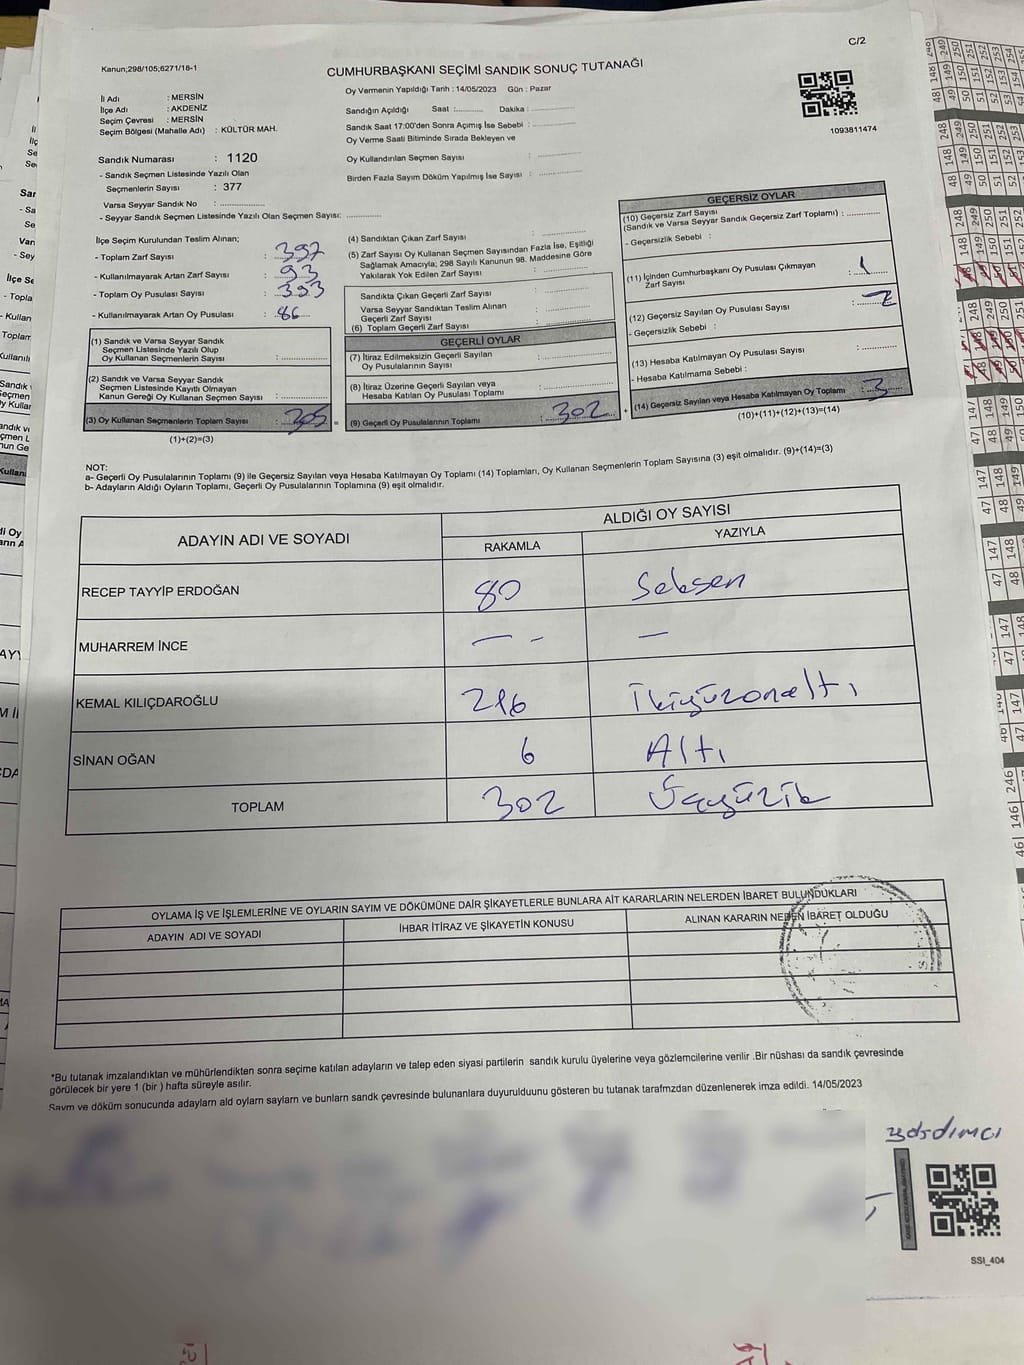 C/2
Kanun;298/105;6271/18-1
CUMHURBAŞKANI SEÇİMİ SANDIK SONUÇ TUTANAĞI
İl Adı : MERSİN
İlçe Adı : AKDENİZ
Seçim Çevresi : MERSİN
Seçim Bölgesi (Mahalle Adı) : KÜLTÜR MAH.
Oy Vermenin Yapıldığı Tarih : 14/05/2023 Gün : Pazar
Sandığın Açıldığı Saat :.......... Dakika :
Sandık Saat 17:00'den Sonra Açımış İse Sebebi :
Oy Verme Saati Bitiminde Sırada Bekleyen ve
Oy Kullandırılan Seçmen Sayısı :
Birden Fazla Sayım Döküm Yapılmış İse Sayısı :
1093811474
Sandık Numarası : 1120
- Sandık Seçmen Listesinde Yazılı Olan
Seçmenlerin Sayısı : 377
Varsa Seyyar Sandık No :
- Seyyar Sandık Seçmen Listesinde Yazılı Olan Seçmen Sayısı:
İlçe Seçim Kurulundan Teslim Alınan;
- Toplam Zarf Sayısı : 397
- Kullanılmayarak Artan Zarf Sayısı : 93
- Toplam Oy Pusulası Sayısı : 393
- Kullanılmayarak Artan Oy Pusulası : 86
(1) Sandık ve Varsa Seyyar Sandık
Seçmen Listesinde Yazılı Olup
Oy Kullanan Seçmenlerin Sayısı :
(2) Sandık ve Varsa Seyyar Sandık
Seçmen Listesinde Kayıtlı Olmayan
Kanun Gereği Oy Kullanan Seçmen Sayısı :
(3) Oy Kullanan Seçmenlerin Toplam Sayısı : 305
(1)+(2)=(3)
(4) Sandıktan Çıkan Zarf Sayısı :
(5) Zarf Sayısı Oy Kullanan Seçmen Sayısından Fazla İse, Eşitliği
Sağlamak Amacıyla; 298 Sayılı Kanunun 98. Maddesine Göre
Yakılarak Yok Edilen Zarf Sayısı :
Sandıkta Çıkan Geçerli Zarf Sayısı :
Varsa Seyyar Sandıktan Teslim Alınan
Geçerli Zarf Sayısı :
(6) Toplam Geçerli Zarf Sayısı :
GEÇERLİ OYLAR
(7) İtiraz Edilmeksizin Geçerli Sayılan
Oy Pusulalarının Sayısı :
(8) İtiraz Üzerine Geçerli Sayılan veya
Hesaba Katılan Oy Pusulası Toplamı :
= (9) Geçerli Oy Pusulalarının Toplamı : 302 +
GEÇERSİZ OYLAR
(10) Geçersiz Zarf Sayısı
(Sandık ve Varsa Seyyar Sandık Geçersiz Zarf Toplamı) :
- Geçersizlik Sebebi :
(11) İçinden Cumhurbaşkanı Oy Pusulası Çıkmayan
Zarf Sayısı : 1
(12) Geçersiz Sayılan Oy Pusulası Sayısı : 2
- Geçersizlik Sebebi :
(13) Hesaba Katılmayan Oy Pusulası Sayısı :
- Hesaba Katılmama Sebebi :
(14) Geçersiz Sayılan veya Hesaba Katılmayan Oy Toplamı : 3
(10)+(11)+(12)+(13)=(14)
NOT:
a- Geçerli Oy Pusulalarının Toplamı (9) ile Geçersiz Sayılan veya Hesaba Katılmayan Oy Toplamı (14) Toplamları, Oy Kullanan Seçmenlerin Toplam Sayısına (3) eşit olmalıdır. (9)+(14)=(3)
b- Adayların Aldığı Oyların Toplamı, Geçerli Oy Pusulalarının Toplamına (9) eşit olmalıdır.
ADAYIN ADI VE SOYADI
ALDIĞI OY SAYISI
RAKAMLA YAZIYLA
RECEP TAYYİP ERDOĞAN 80 Seksen
MUHARREM İNCE — - —
KEMAL KILIÇDAROĞLU 216 İkiyüzonaltı
SİNAN OĞAN 6 Altı
TOPLAM 302 Üçyüziki
OYLAMA İŞ VE İŞLEMLERİNE VE OYLARIN SAYIM VE DÖKÜMÜNE DAİR ŞİKAYETLERLE BUNLARA AİT KARARLARIN NELERDEN İBARET BULUNDUKLARI
ADAYIN ADI VE SOYADI İHBAR İTİRAZ VE ŞİKAYETİN KONUSU ALINAN KARARIN NEDEN İBARET OLDUĞU
*Bu tutanak imzalandıktan ve mühürlendikten sonra seçime katılan adayların ve talep eden siyasi partilerin sandık kurulu üyelerine veya gözlemcilerine verilir .Bir nüshası da sandık çevresinde
görülecek bir yere 1 (bir ) hafta süreyle asılır.
Sayım ve döküm sonucunda adaylarn ald oylarn saylarn ve bunlarn sandk çevresinde bulunanlara duyurulduunu gösteren bu tutanak tarafmzdan düzenlenerek imza edildi. 14/05/2023
SSI_404